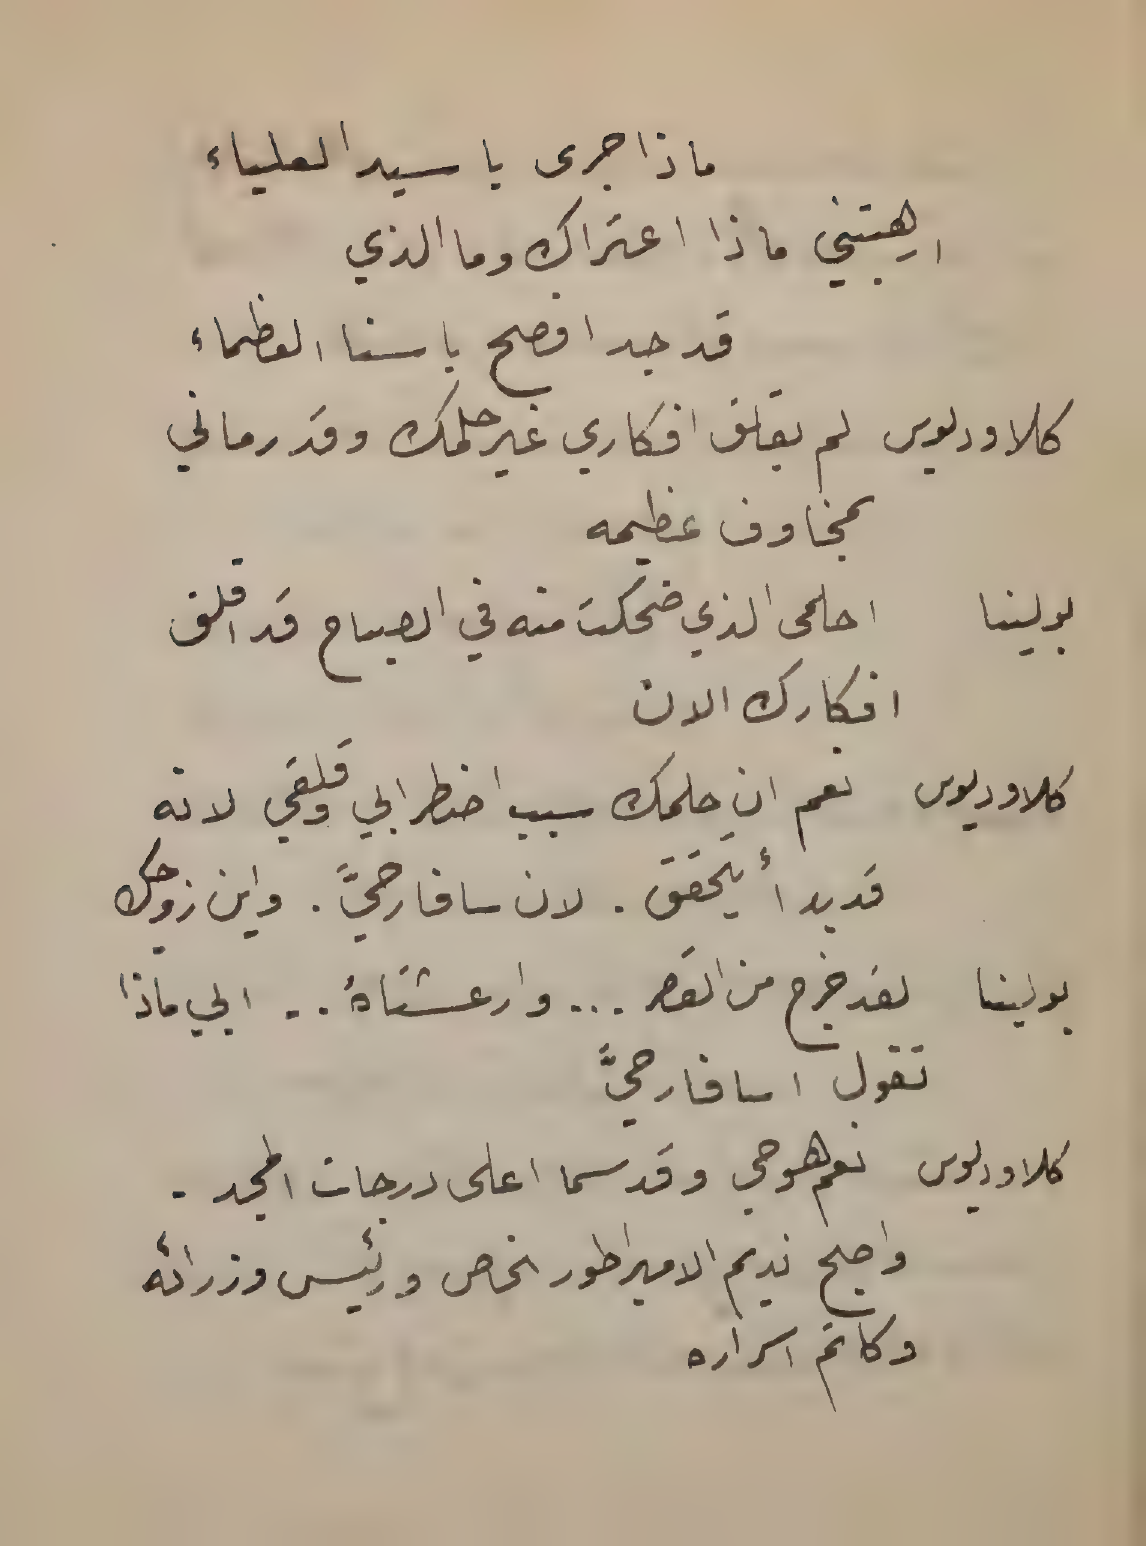 ماذا جرى يا سيد العلياء
ارهبتني ماذا اعتراك وما الذي
قد جد افصح يا سنا العظماء
كلاوديوس لم يقلق افكاري غير حلمك وقد رماني
بمخاوف عظيمه
بولينا احلمى الذي ضحكتَ منه في الصباح قد اقلق
افكارك الان
كلاوديوس نعم ان حلمك سبب اضطرابي وقلقي لانه
قد بدأ يتحقق . لان سافار حيٌّ . واين زوجك
بولينا لقد خرج من القصر ... وارعشتاهُ .. ابي ماذا
تقول اسافار حيٌّ
كلاوديوس نعم هو حي وقد سما اعلى درجات المجد .
واصبح نديم الامبراطور الخاص ورئيس وزرائه
وكاتم اسراره